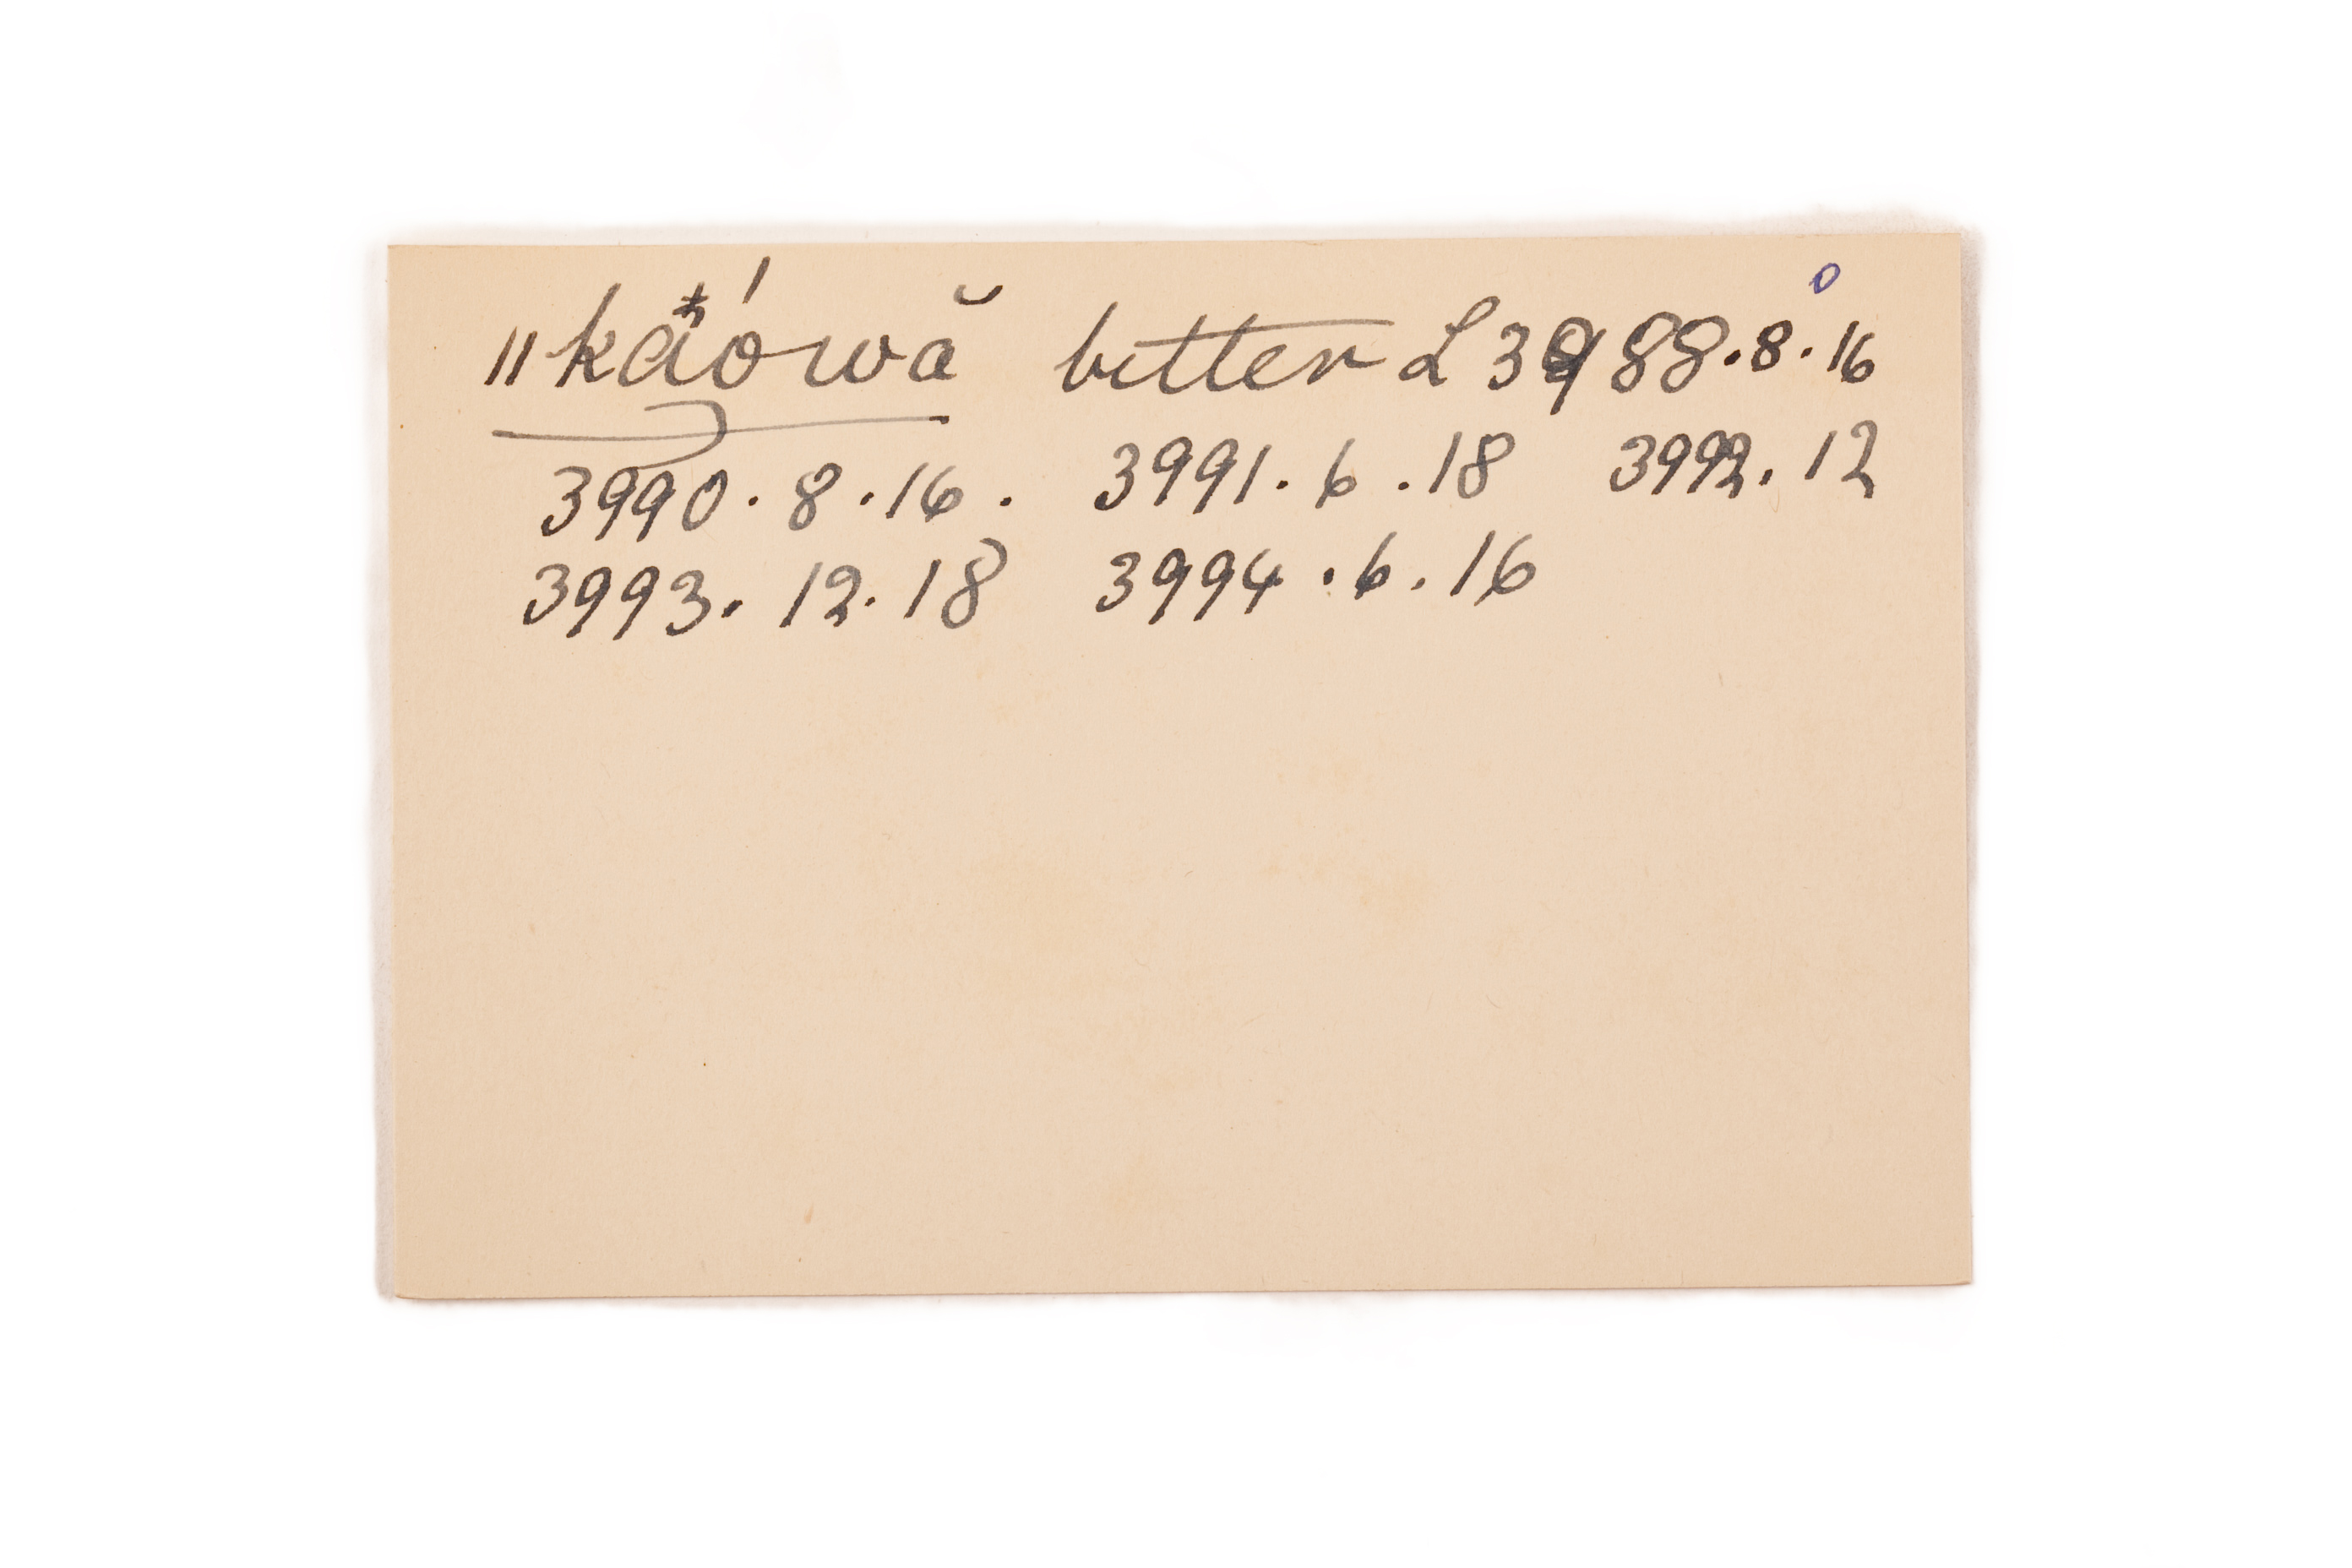 ǁkăówă bitter L3988.8.16
3990.8.16. 3991.6.18 3992.12
3993.12.18 3994.6.16